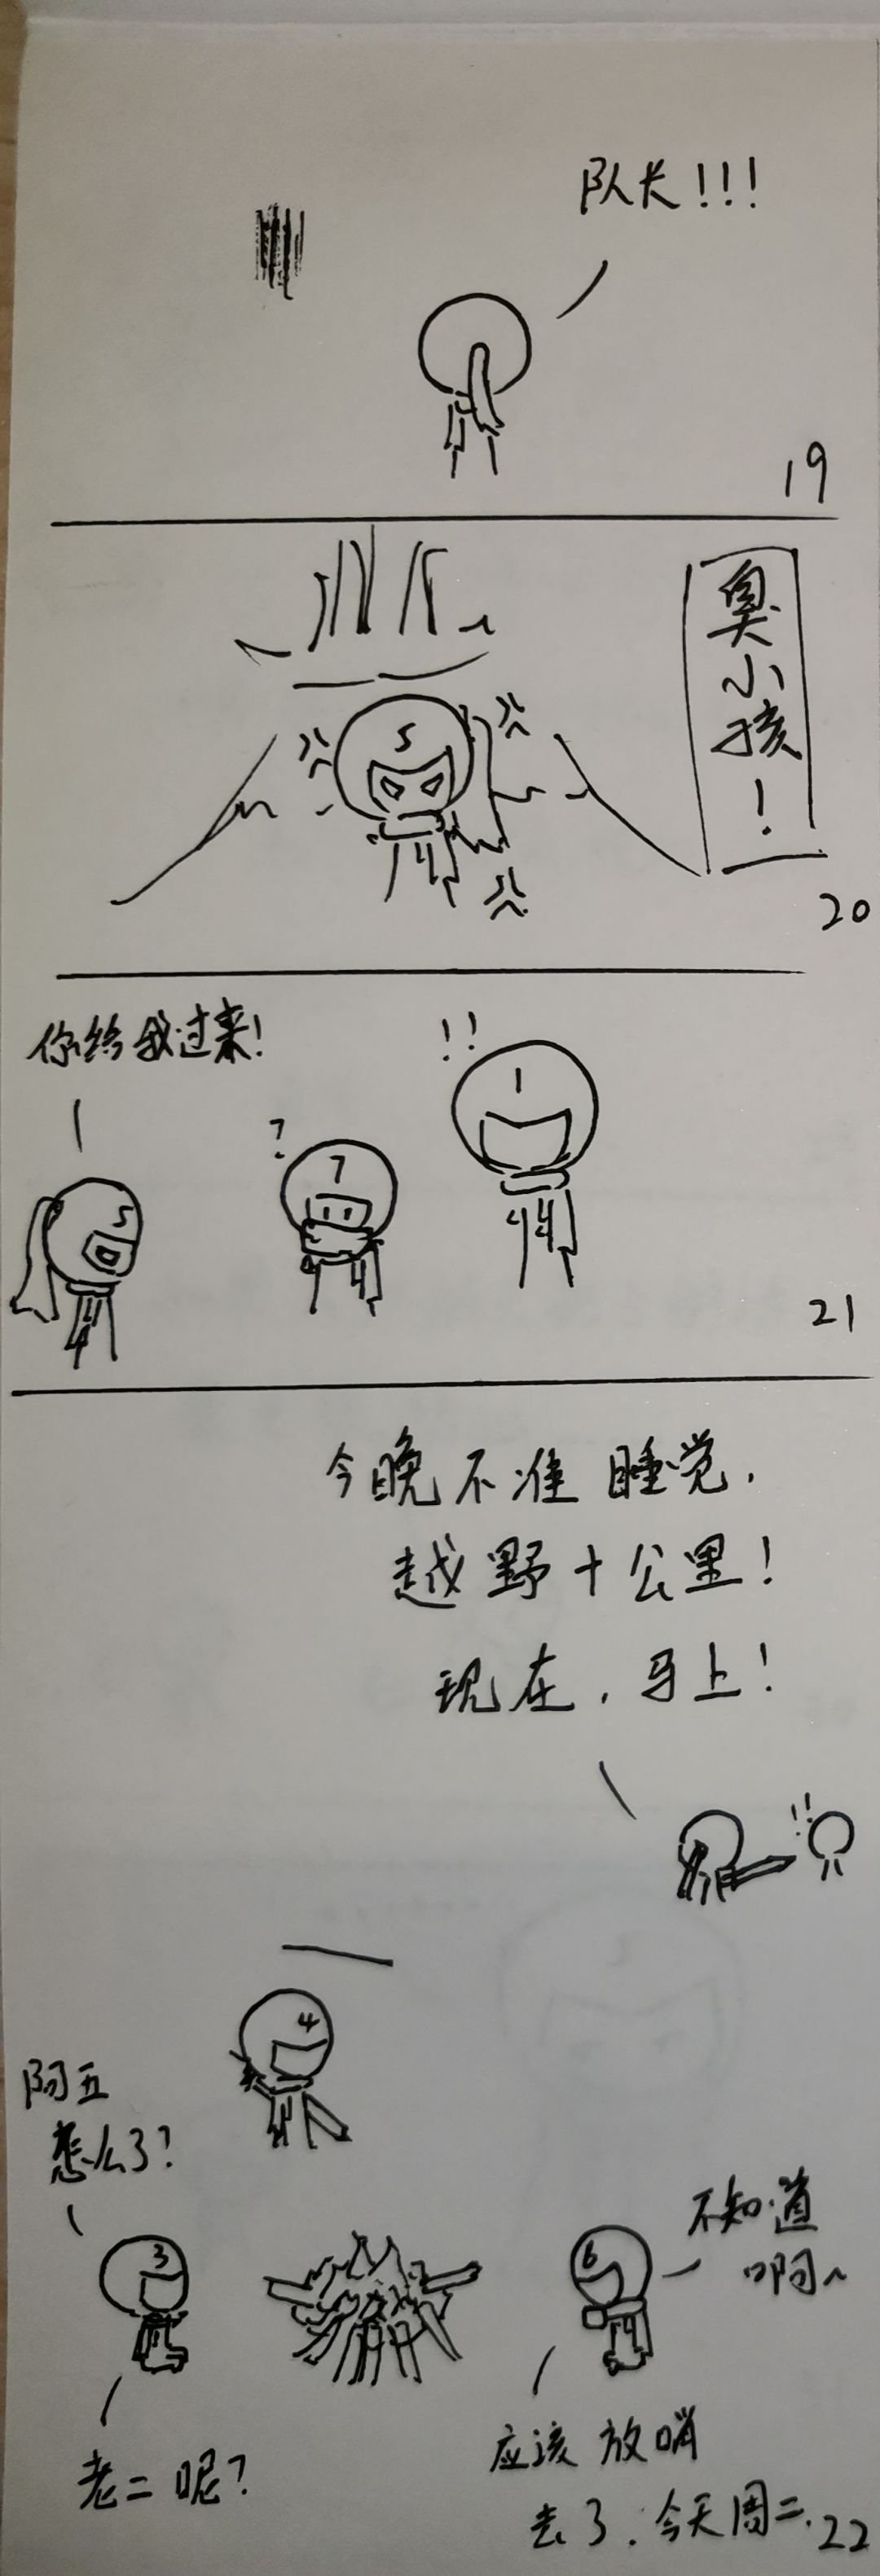 队长!!!
19
臭小孩!
5
20
你给我过来!
!!
1
?
7
5
21
今晚不准睡觉.
越野十公里!
现在,马上!
!!
4
阿五
怎么了?
3
6
不知道
啊~
老二呢?
应该放哨
去了.今天周二.
22